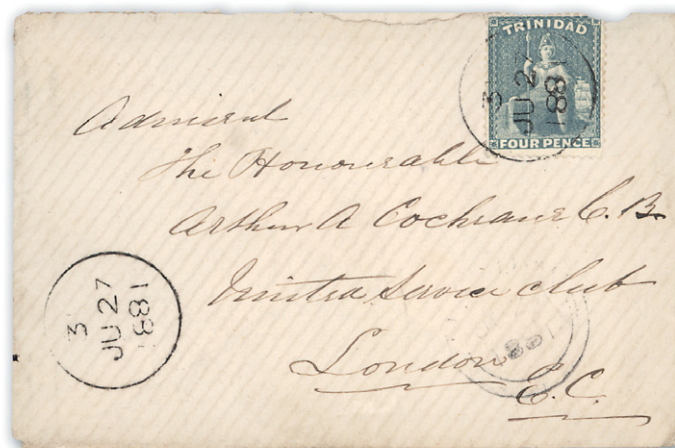 TRINIDAD
3
JU 27
1881
FOUR PENCE
Admiral
The Honourable
Arthur A Cochrane C.B.
United Service Club
London
E.C.
3
JU 27
1881